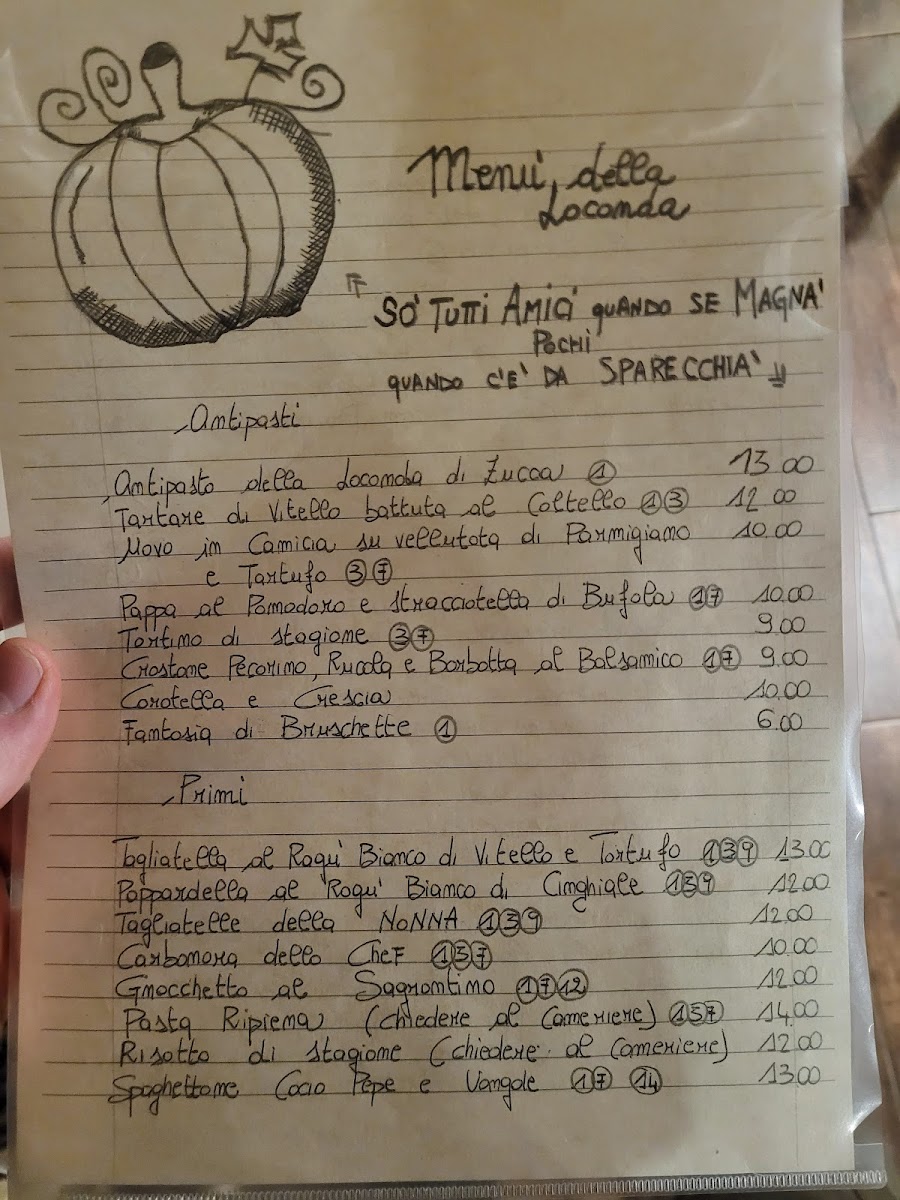 Menù della
Locanda
SO' TUTTI AMICI QUANDO SE MAGNA'
POCHI
QUANDO C'E' DA SPARECCHIA'
Antipasti
Antipasto della Locanda di Zucca ① 13.00
Tartare di Vitello battuta al Coltello ①③ 12.00
Uovo in Camicia su vellutata di Parmigiano 10.00
e Tartufo ③⑦
Pappa al Pomodoro e stracciatella di Bufala ①⑦ 10.00
Tortino di stagione ③⑦ 9.00
Crostone Pecorino, Rucola e Barbotta al Balsamico ①⑦ 9.00
Coratella e Crescia 10.00
Fantasia di Bruschette ① 6.00
Primi
Tagliatella al Ragù Bianco di Vitello e Tartufo ①③⑨ 13.00
Pappardella al Ragù Bianco di Cinghiale ①③⑨ 12.00
Tagliatelle della NONNA ①③⑨ 12.00
Carbonara dello CHEF ①③⑦ 10.00
Gnocchetto al Sagrantino ①⑦⑫ 12.00
Pasta Ripiena (chiedere al Cameriere) ①③⑦ 14.00
Risotto di stagione (chiedere al Cameriere) 12.00
Spaghettone Cacio Pepe e Vongole ①⑦ ⑭ 13.00